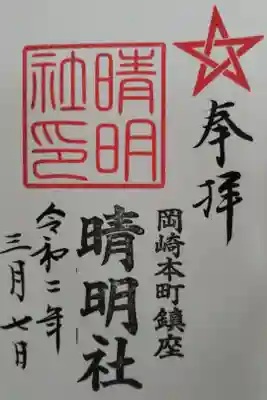 奉拝
岡崎本町鎮座
晴明社
晴明社印
令和二年
三月七日